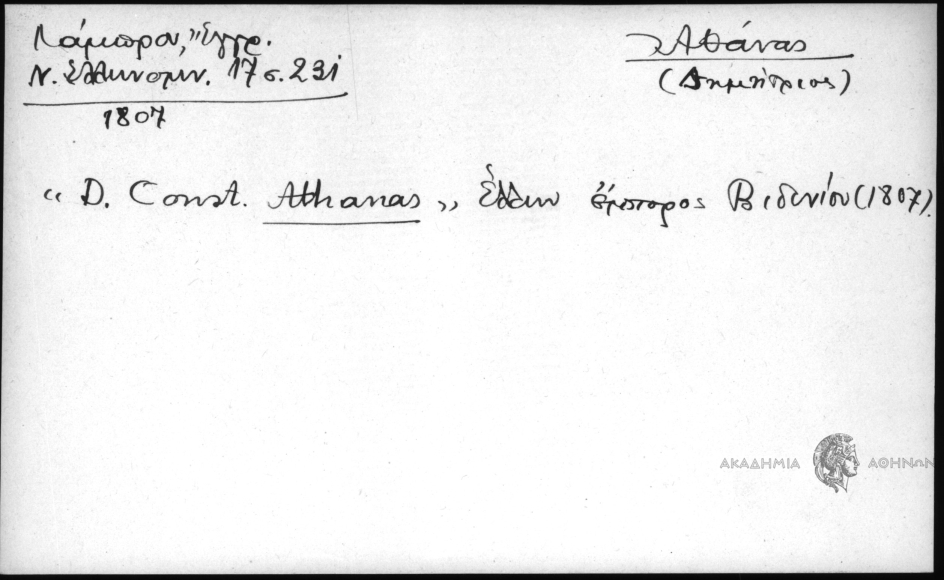 Λάμπρου, "Έγγρ.
Ν. Ελληνομν. 17 σ. 231
1807
Αθάνας
(Δημήτριος)
“ D. Const. Athanas „ Έλλην έμπορος Βιδινίου (1807).
ΑΚΑΔΗΜΙΑ ΑΘΗΝΩΝ